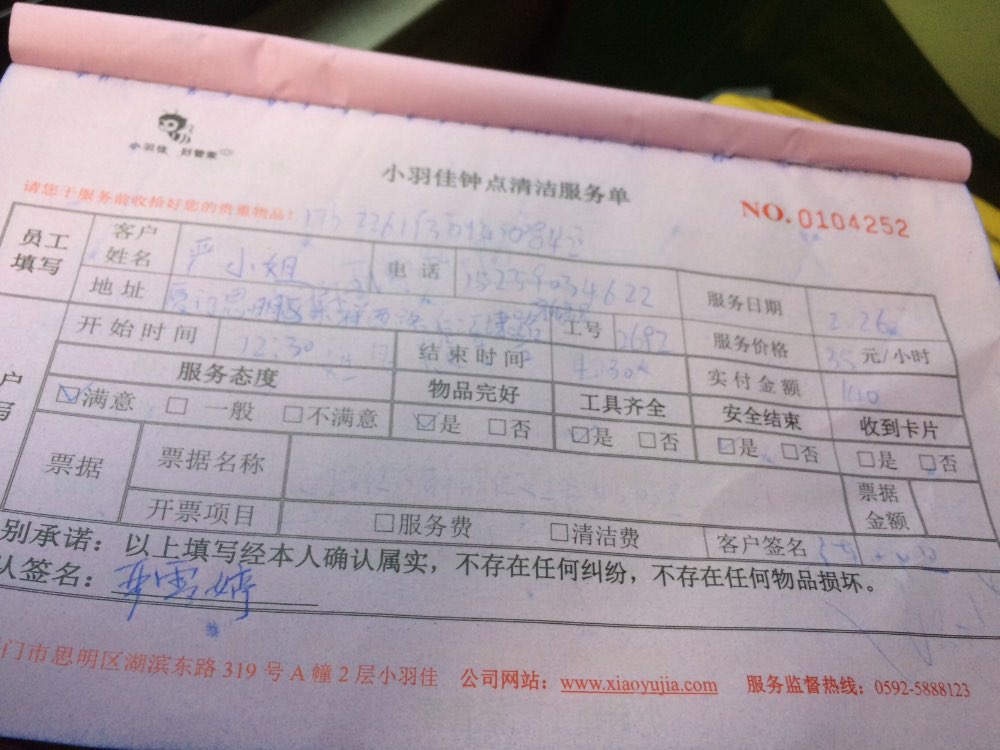 小羽佳 好管家
小羽佳钟点清洁服务单
请您于服务前收拾好您的贵重物品!
NO. 0104252
员工填写 客户姓名 严小姐 电话 15259034622 服务日期 2.26
地址 厦门思明区 工号 2692 服务价格 35元/小时
开始时间 12:30 结束时间 4:30 实付金额 140
服务态度 物品完好 工具齐全 安全结束 收到卡片
☑满意 □一般 □不满意 ☑是 □否 ☑是 □否 ☑是 □否 □是 □否
票据 票据名称 票据金额
开票项目 □服务费 □清洁费 客户签名
别承诺：以上填写经本人确认属实，不存在任何纠纷，不存在任何物品损坏。
认签名：
门市思明区湖滨东路 319 号 A 幢 2 层小羽佳 公司网站：www.xiaoyujia.com 服务监督热线：0592-5888123